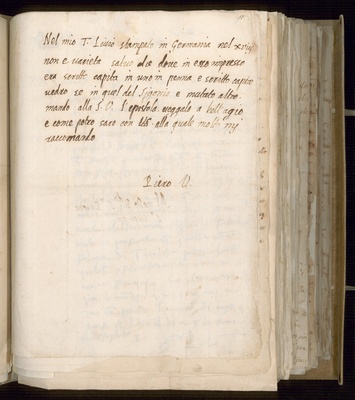 Nel mio T. Livio stampato in Germania nel
non e varieta salvo che dove in esso impresso
era scritto capita in uno in penna e scritto capto
vedro se in quel del Sigonio e mutato altro
mando alla S.V. l'epistola veggala a bell'agio
e come potro saro con lei alla quale molto mi
raccomando
Piero V.